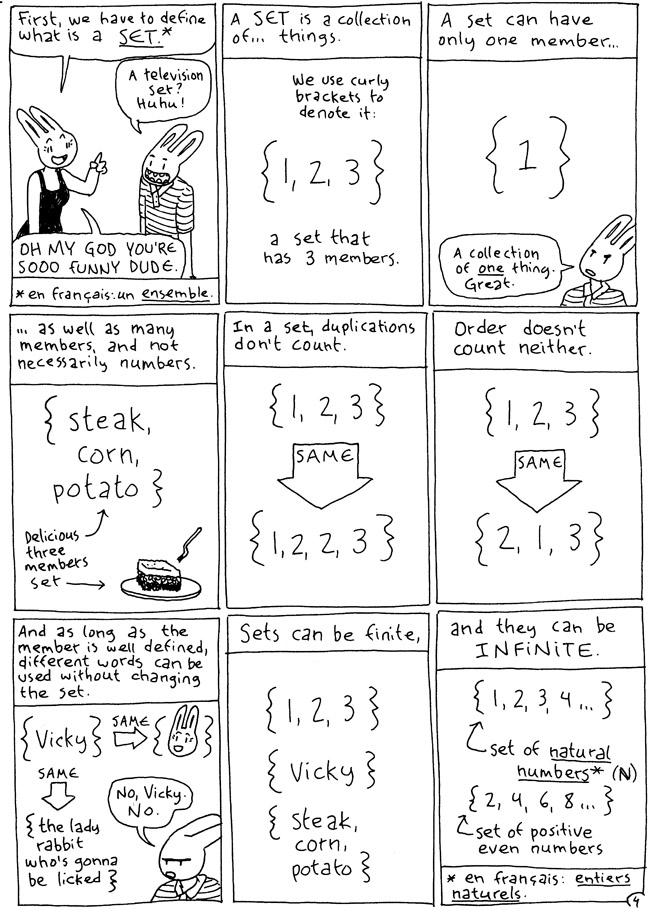 First, we have to define
what is a SET.*
A television
set?
Huhu!
OH MY GOD YOU'RE
SOOO FUNNY DUDE.
* en français: un ensemble.
A SET is a collection
of... things.
We use curly
brackets to
denote it:
{1, 2, 3}
a set that
has 3 members.
A set can have
only one member...
{1}
A collection
of one thing.
Great.
... as well as many
members, and not
necessarily numbers.
{ steak,
corn,
potato }
Delicious
three
members
set
In a set, duplications
don't count.
{1, 2, 3}
SAME
{1, 2, 2, 3}
Order doesn't
count neither.
{1, 2, 3}
SAME
{2, 1, 3}
And as long as the
member is well defined,
different words can be
used without changing
the set.
{Vicky} SAME { }
SAME
{ the lady
rabbit
who's gonna
be licked }
No, Vicky.
No.
Sets can be finite,
{1, 2, 3}
{Vicky}
{ steak,
corn,
potato }
and they can be
INFINITE.
{1, 2, 3, 4 ... }
set of natural
numbers* (ℕ)
{2, 4, 6, 8 ... }
set of positive
even numbers
* en français: entiers
naturels.
4